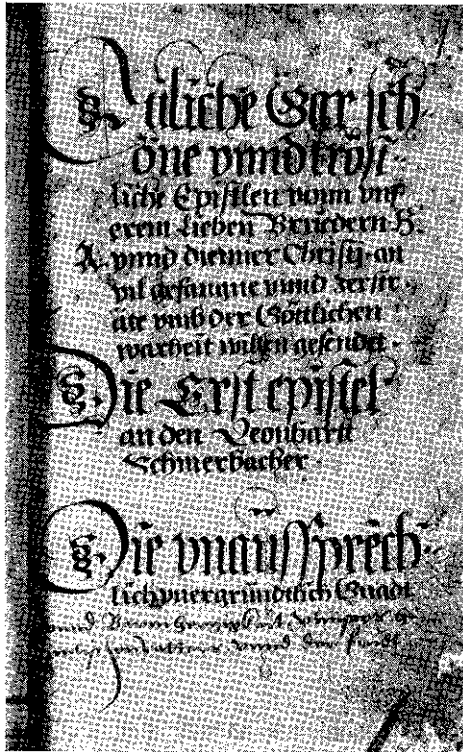 Etliche Gar sch-
öne vnnd tröst-
liche Epistlen vonn vns
erem lieben Bruedern H.
A. vnnd diener Christj. an
vil gefangne vnnd zerstr-
äte vmb der Göttlichen
warheit willen gesendet.
Die Erst epistel
an den Leonhartt
Schmerbacher.
Die vnaussprech-
lich vnergründtlich Gnadt
vnnd
vnnd der